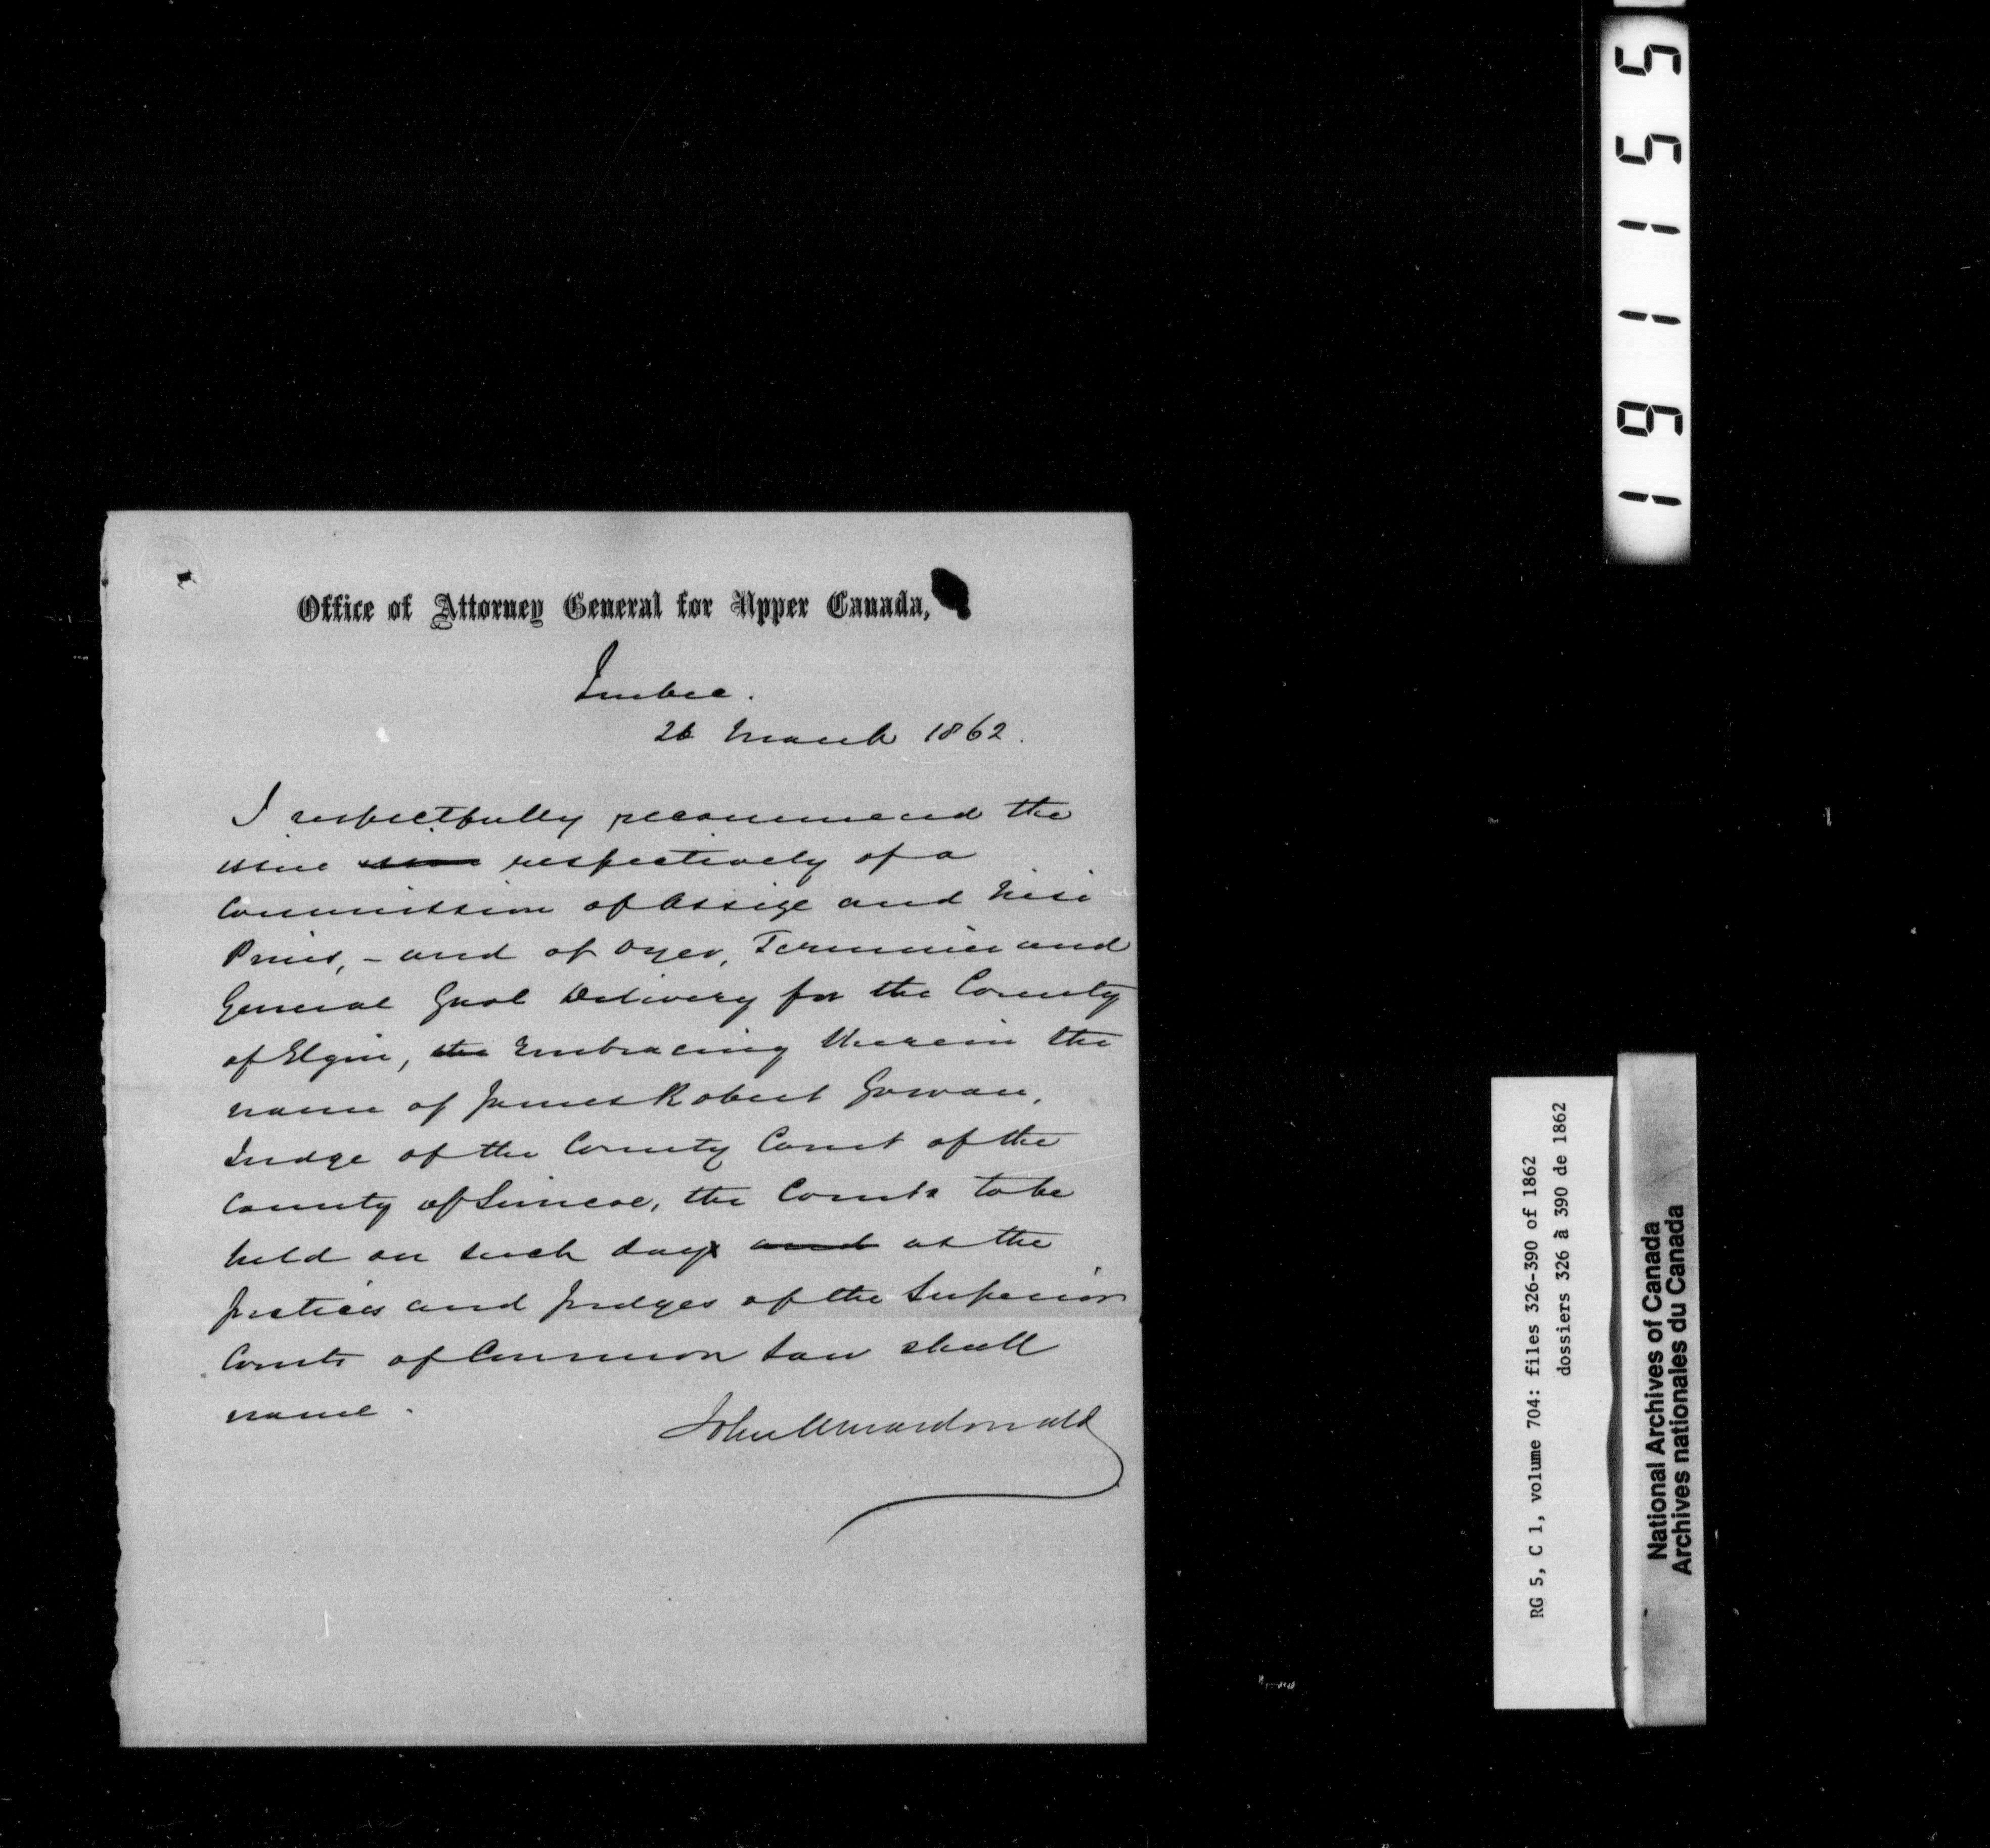 Office of Attorney General for Upper Canada,
Quebec.
26 March 1862.
I respectfully recommend the
issue respectively of a
Commission of Assize and Nisi
Prius, - and of Oyer, Terminer and
General Gaol Delivery for the County
of Elgin, the Embracing therein the
name of James Robert Gowan,
Judge of the County Court of the
County of Simcoe, the Courts to be
held on such day and as the
Justices and Judges of the Superior
Courts of Common Law shall
name.
John A Macdonald
551161
RG 5, C 1, volume 704: files 326-390 of 1862
dossiers 326 à 390 de 1862
National Archives of Canada
Archives nationales du Canada